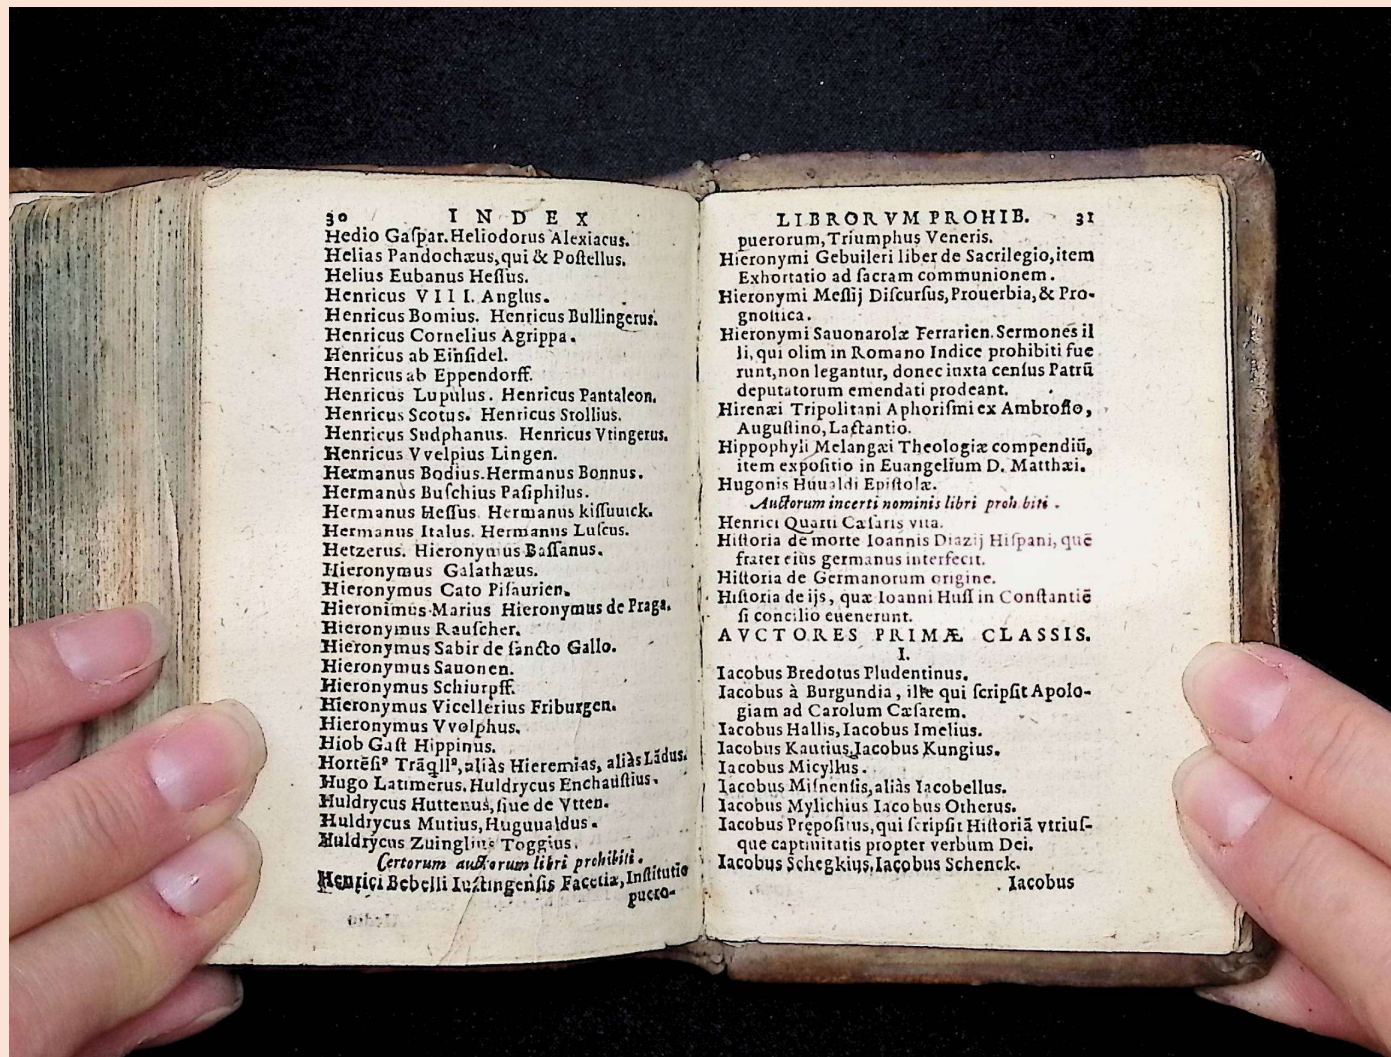 30 INDEX
Hedio Gaſpar. Heliodorus Alexiacus.
Helias Pandochæus, qui & Poſtellus.
Helius Eubanus Heſſus.
Henricus VIII. Anglus.
Henricus Bomius. Henricus Bullingerus.
Henricus Cornelius Agrippa.
Henricus ab Einſidel.
Henricus ab Eppendorff.
Henricus Lupulus. Henricus Pantaleon.
Henricus Scotus. Henricus Stollius.
Henricus Sudphanus. Henricus Vtingerus.
Henricus Vvelpius Lingen.
Hermanus Bodius. Hermanus Bonnus.
Hermanus Buſchius Paſiphilus.
Hermanus Heſſus. Hermanus kiſſuuick.
Hermanus Italus. Hermanus Luſcus.
Hetzerus. Hieronymus Baſſanus.
Hieronymus Galathæus.
Hieronymus Cato Piſaurien.
Hieronimus Marius Hieronymus de Praga.
Hieronymus Rauſcher.
Hieronymus Sabir de ſancto Gallo.
Hieronymus Sauonen.
Hieronymus Schiurpff.
Hieronymus Vicellerius Friburgen.
Hieronymus Vvolphus.
Hiob Gaſt Hippinus.
Hortēſiꝰ Trāqllꝰ, aliàs Hieremias, aliàs Lādus.
Hugo Latimerus. Huldrycus Enchauſtius.
Huldrycus Huttenus, ſiue de Vtten.
Huldrycus Mutius, Huguualdus.
Huldrycus Zuinglius Toggius.
Certorum auctorum libri prohibiti.
Henrici Bebelli Iuſtingenſis Facetiæ, Inſtitutio
puero-
LIBRORVM PROHIB. 31
puerorum, Triumphus Veneris.
Hieronymi Gebuileri liber de Sacrilegio, item
Exhortatio ad ſacram communionem.
Hieronymi Meſſij Diſcurſus, Prouerbia, & Pro-
gnoſtica.
Hieronymi Sauonarolæ Ferrarien. Sermones il
li, qui olim in Romano Indice prohibiti fue
runt, non legantur, donec iuxta cenſus Patrū
deputatorum emendati prodeant.
Hirenæi Tripolitani Aphoriſmi ex Ambroſio,
Auguſtino, Lactantio.
Hippophyli Melangæi Theologiæ compendiū,
item expoſitio in Euangelium D. Matthæi.
Hugonis Huualdi Epiſtolæ.
Auctorum incerti nominis libri prohibiti.
Henrici Quarti Cæſaris vita.
Hiſtoria de morte Ioannis Diazij Hiſpani, quē
frater eius germanus interfecit.
Hiſtoria de Germanorum origine.
Hiſtoria de ijs, quæ Ioanni Huſſ in Conſtantiē
ſi concilio euenerunt.
AVCTORES PRIMÆ CLASSIS.
I.
Iacobus Bredotus Pludentinus.
Iacobus à Burgundia, ille qui ſcripſit Apolo-
giam ad Carolum Cæſarem.
Iacobus Hallis, Iacobus Imelius.
Iacobus Kautius, Iacobus Kungius.
Iacobus Micyllus.
Iacobus Miſnenſis, aliàs Iacobellus.
Iacobus Mylichius Iacobus Otherus.
Iacobus Prępoſitus, qui ſcripſit Hiſtoriā vtriuſ-
que captiuitatis propter verbum Dei.
Iacobus Schegkius, Iacobus Schenck.
Iacobus